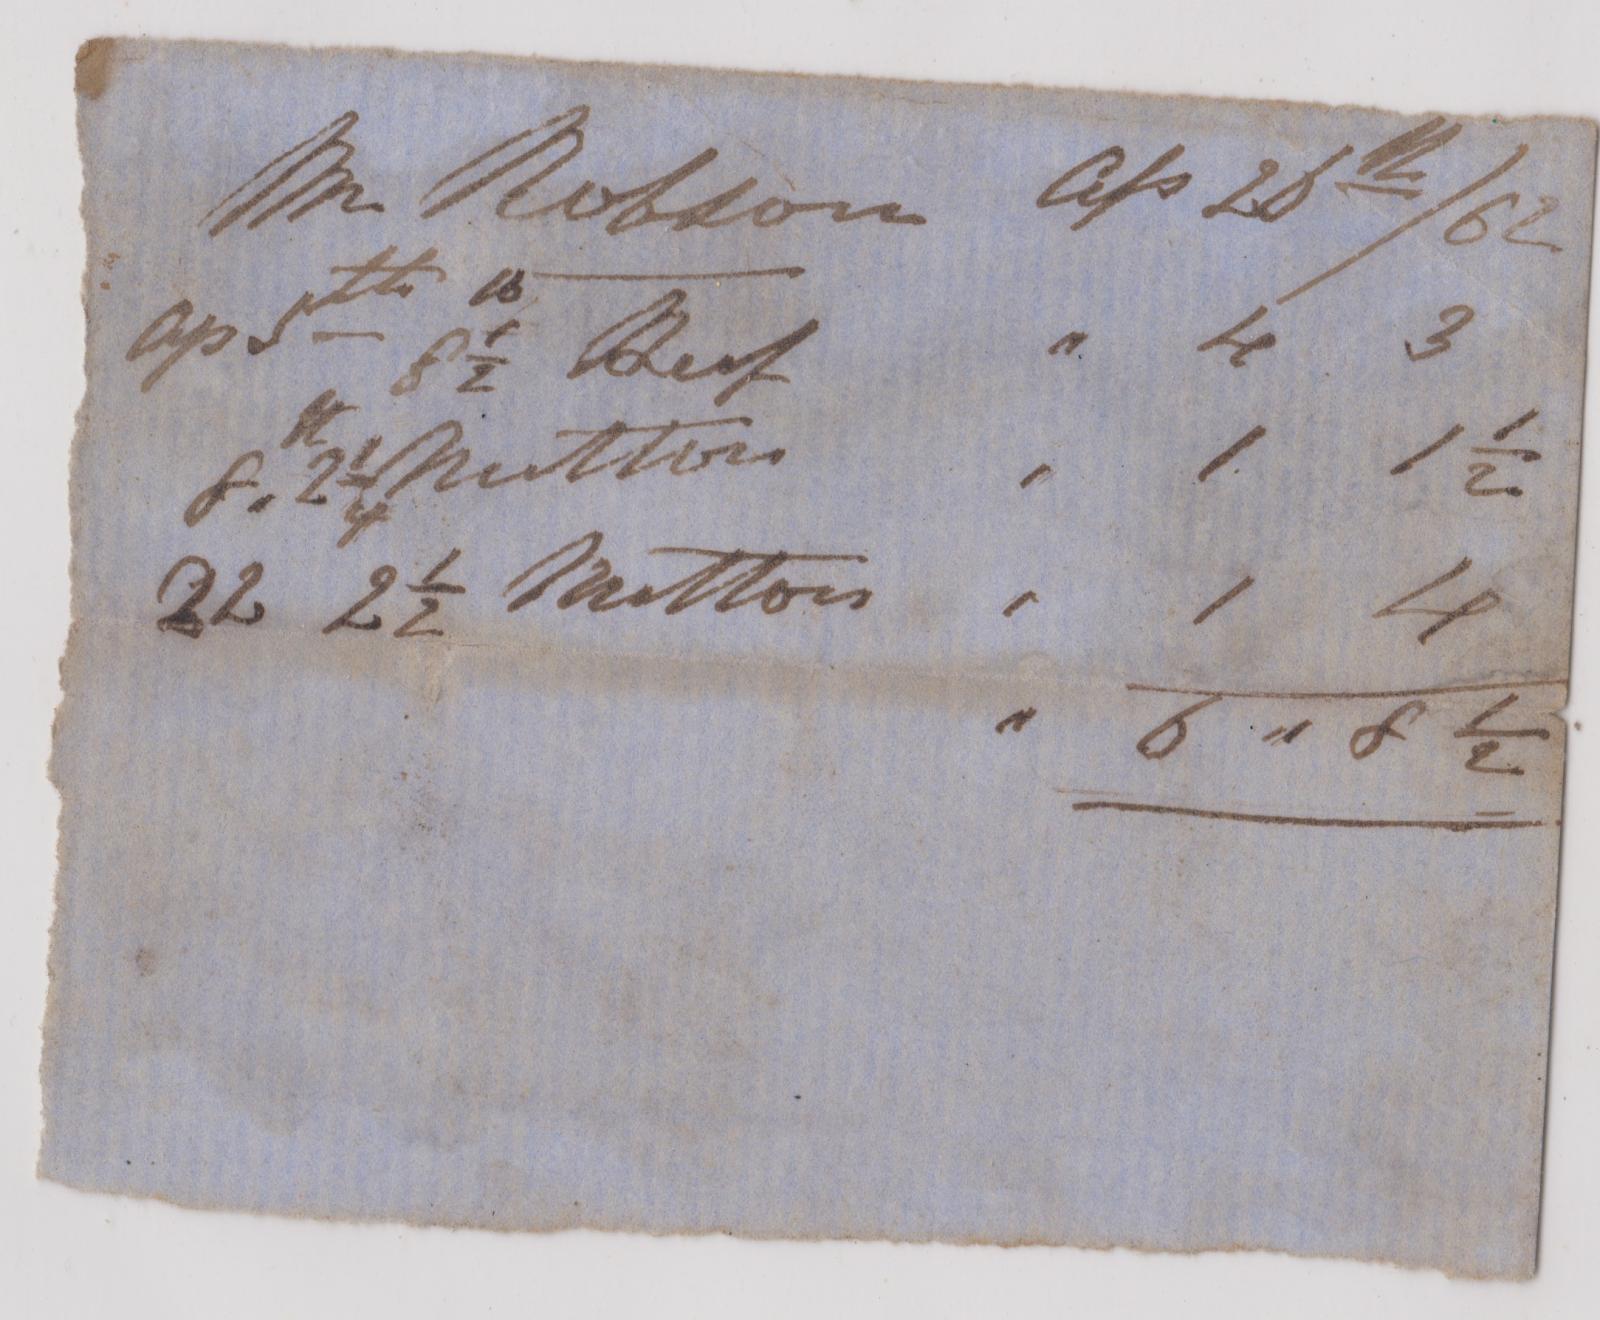 Mr Robson Ap 28th/62
Ap 5th lb 8 1/2 Beef " 4 3
8th 2 1/4 Mutton " 1 1 1/2
22 2 1/2 Mutton " 1 4
" 6 " 8 1/2